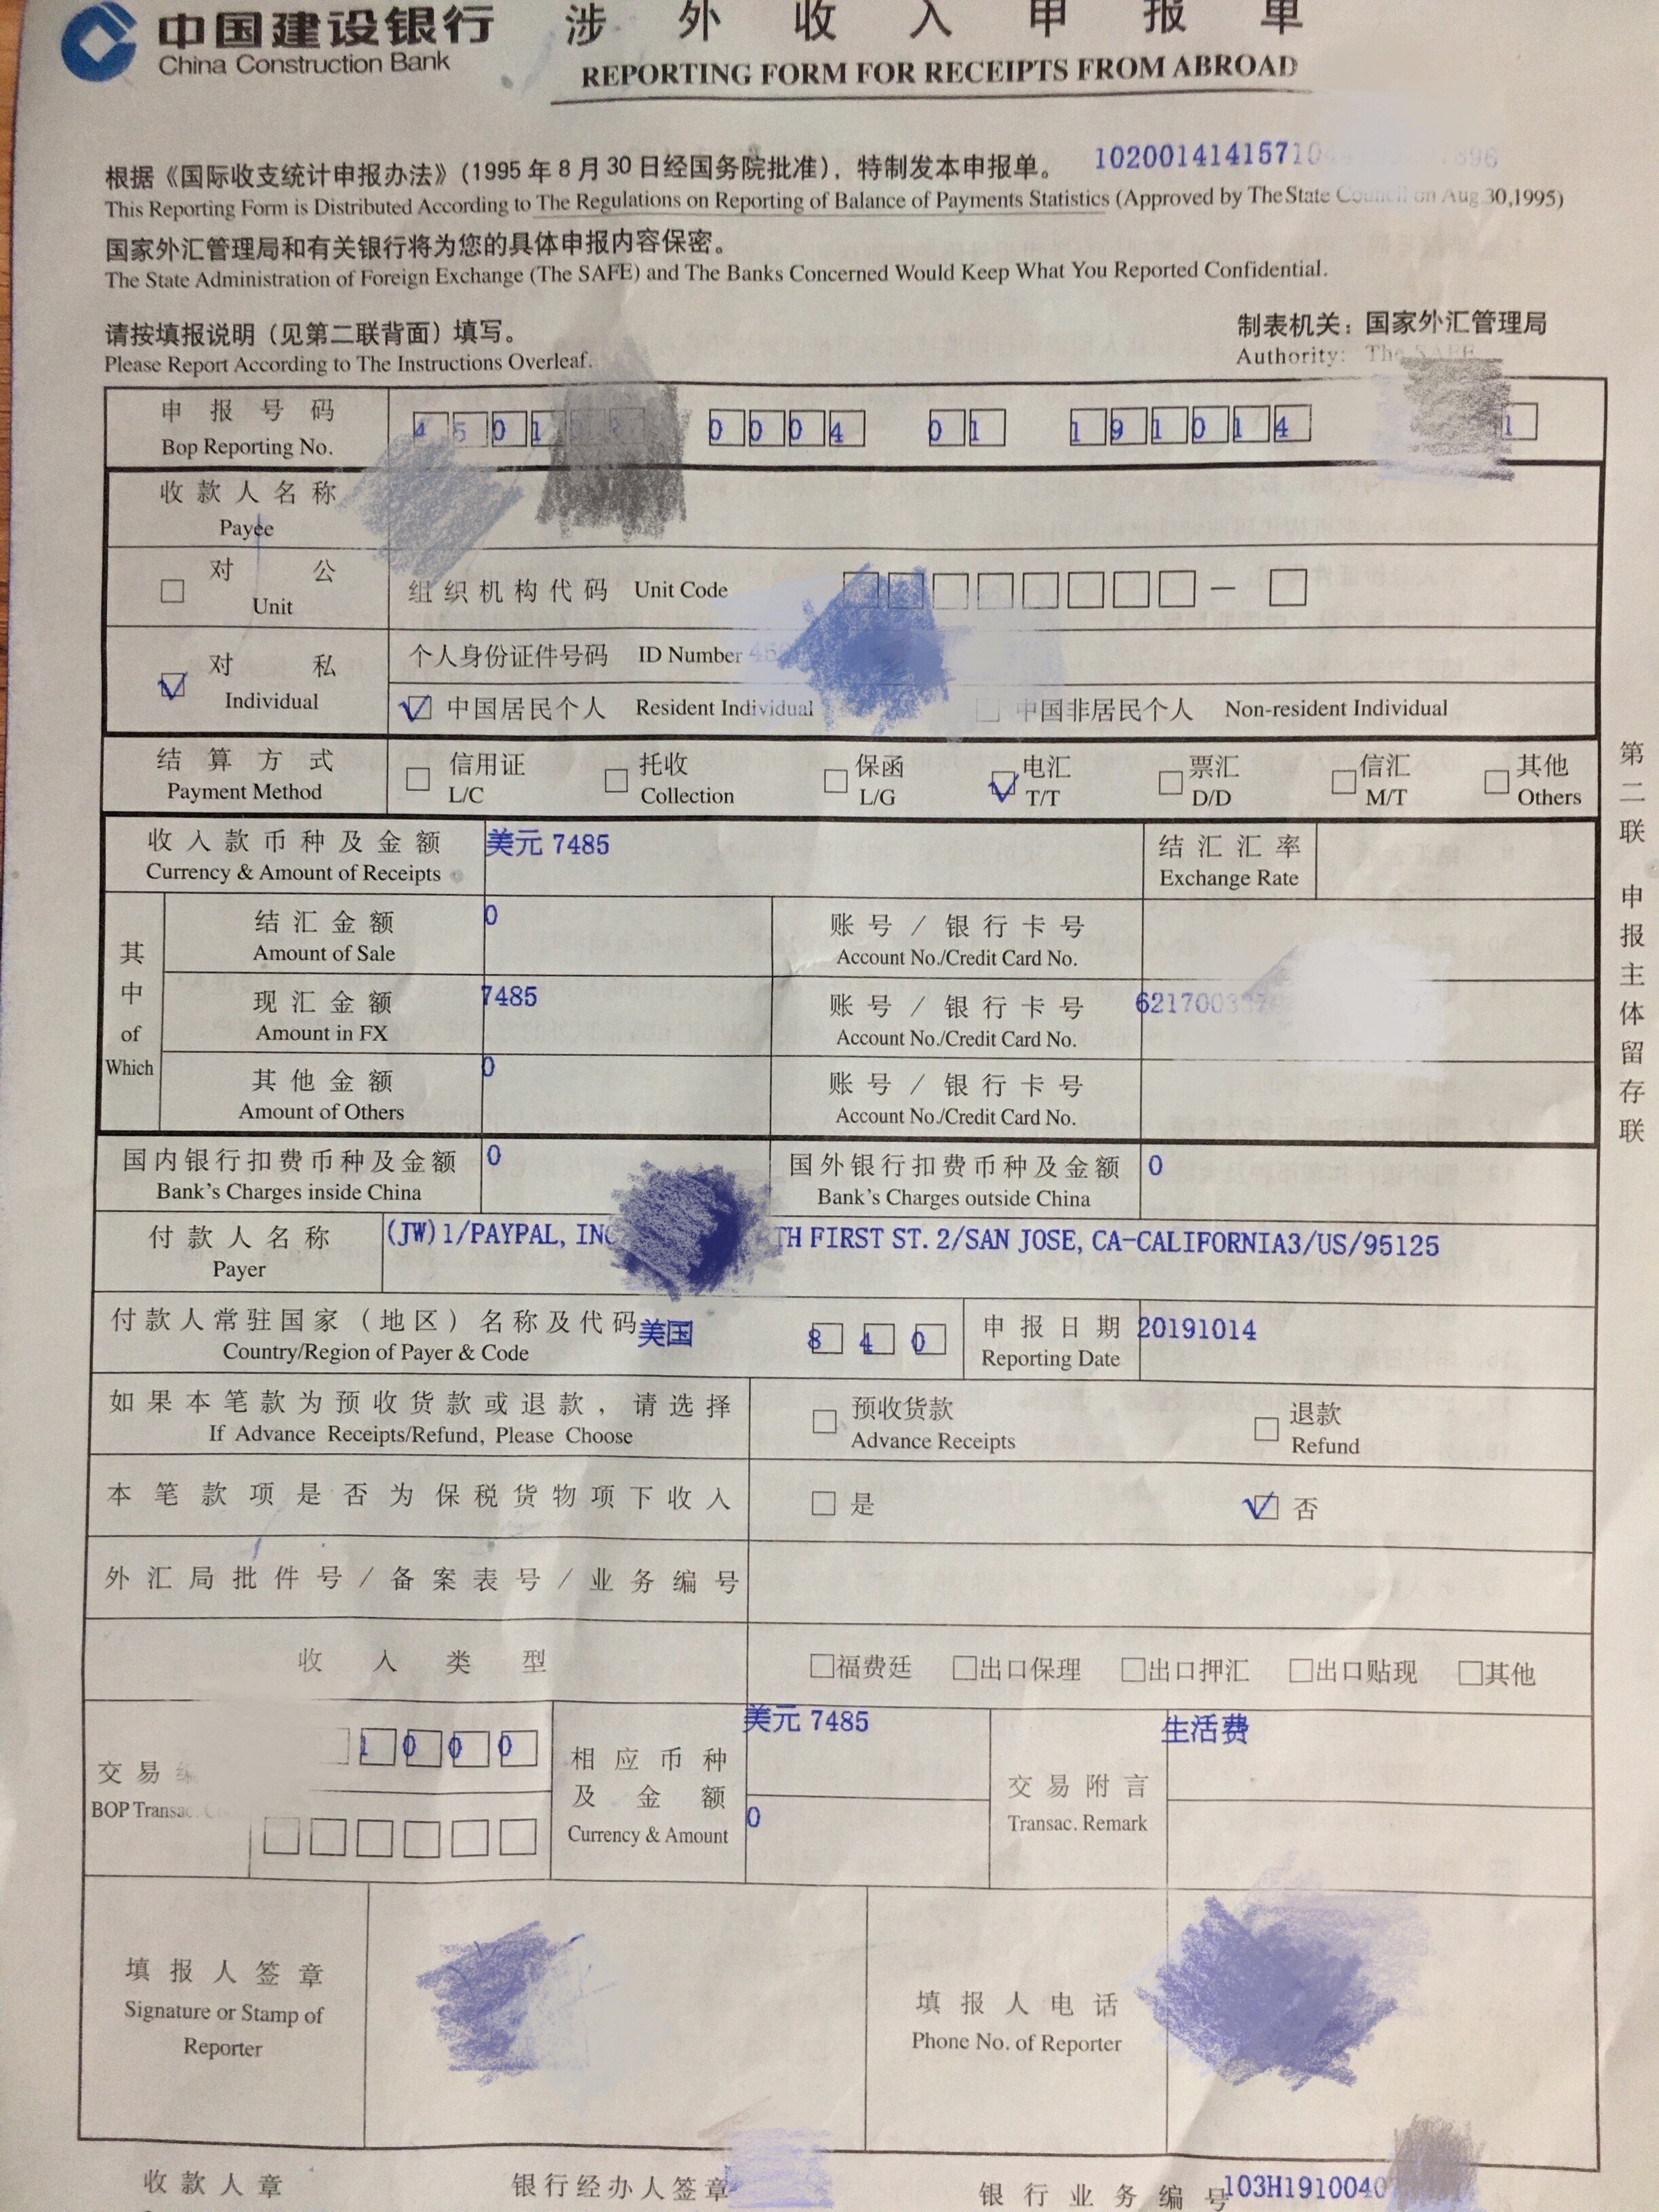 中国建设银行
China Construction Bank
涉外收入申报单
REPORTING FORM FOR RECEIPTS FROM ABROAD
根据《国际收支统计申报办法》(1995年8月30日经国务院批准),特制发本申报单。 10200141415710
This Reporting Form is Distributed According to The Regulations on Reporting of Balance of Payments Statistics (Approved by The State Council on Aug.30,1995)
国家外汇管理局和有关银行将为您的具体申报内容保密。
The State Administration of Foreign Exchange (The SAFE) and The Banks Concerned Would Keep What You Reported Confidential.
请按填报说明(见第二联背面)填写。 制表机关:国家外汇管理局
Please Report According to The Instructions Overleaf. Authority: The SAFE
申报号码 4501 0004 01 191014 1
Bop Reporting No.
收款人名称
Payee
对公 组织机构代码 Unit Code
Unit
对私 个人身份证件号码 ID Number
Individual 中国居民个人 Resident Individual 中国非居民个人 Non-resident Individual
结算方式 信用证 托收 保函 电汇 票汇 信汇 其他
Payment Method L/C Collection L/G T/T D/D M/T Others
收入款币种及金额 美元 7485 结汇汇率
Currency & Amount of Receipts Exchange Rate
其中 of Which
结汇金额 0 账号/银行卡号
Amount of Sale Account No./Credit Card No.
现汇金额 7485 账号/银行卡号 621700
Amount in FX Account No./Credit Card No.
其他金额 0 账号/银行卡号
Amount of Others Account No./Credit Card No.
国内银行扣费币种及金额 0 国外银行扣费币种及金额 0
Bank's Charges inside China Bank's Charges outside China
付款人名称 (JW)1/PAYPAL, INC TH FIRST ST. 2/SAN JOSE, CA-CALIFORNIA3/US/95125
Payer
付款人常驻国家(地区)名称及代码 美国 840 申报日期 20191014
Country/Region of Payer & Code Reporting Date
如果本笔款为预收货款或退款,请选择 预收货款 退款
If Advance Receipts/Refund, Please Choose Advance Receipts Refund
本笔款项是否为保税货物项下收入 是 否
外汇局批件号/备案表号/业务编号
收入类型 福费廷 出口保理 出口押汇 出口贴现 其他
交易 1000 相应币种及金额 美元 7485 交易附言 生活费
BOP Transac. Currency & Amount 0 Transac. Remark
填报人签章 填报人电话
Signature or Stamp of Reporter Phone No. of Reporter
收款人章 银行经办人签章 银行业务编号 103H1910040
第二联 申报主体留存联